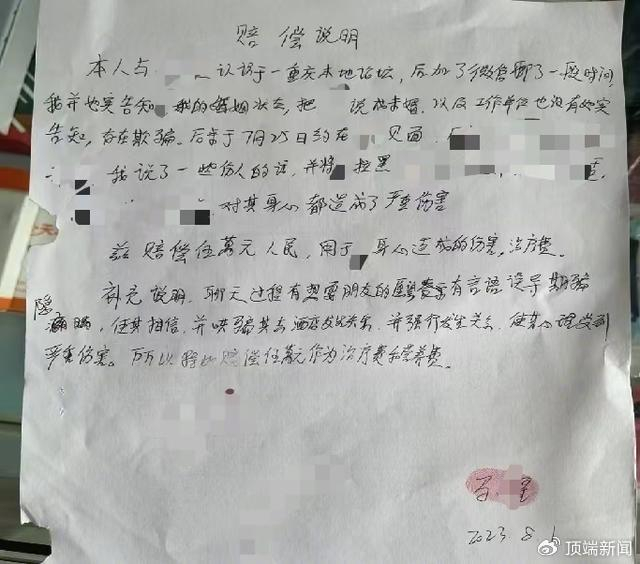 赔偿说明
本人与 认识于一重庆本地论坛，后加了微信聊了一段时间，
我并也实告知 我的婚姻状态，把 说成未婚，以及工作单位也没有如实
告知，存在欺骗。后来于7月25日约在 见面，
我说了一些伤人的话，并将 拉黑
对其身心都造成了严重伤害
兹赔偿伍萬元人民，用于 身心造成的伤害，治疗费。
补充说明，聊天过程有想要朋友的 有言语误导欺骗
隐瞒 ，使其相信，并哄骗其去酒店发生关系，并强行发生关系，使其心理受到
严重伤害。所以 赔偿伍萬元作为治疗费和营养费。
2023.8.1
顶端新闻